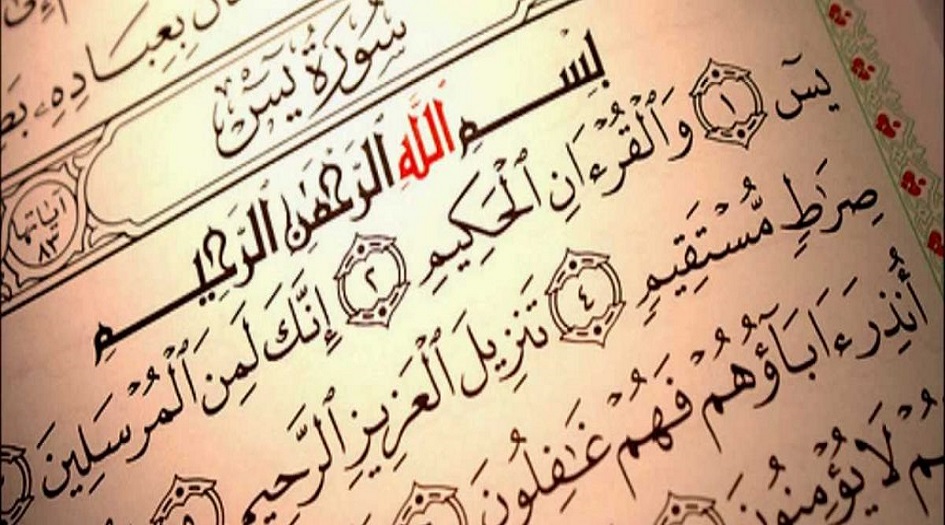 بِعِبَادِهِۦ
سُورَةُ يسٓ
ءَايَاتُهَا ٨٣
بِسْمِ ٱللَّهِ ٱلرَّحْمَٰنِ ٱلرَّحِيمِ
يسٓ ١ وَٱلْقُرْءَانِ ٱلْحَكِيمِ ٢ إِنَّكَ لَمِنَ ٱلْمُرْسَلِينَ
صِرَٰطٍ مُّسْتَقِيمٍ ٤ تَنزِيلَ ٱلْعَزِيزِ ٱلرَّحِيمِ
أُنذِرَ ءَابَآؤُهُمْ فَهُمْ غَٰفِلُونَ
لَا يُؤْمِنُونَ